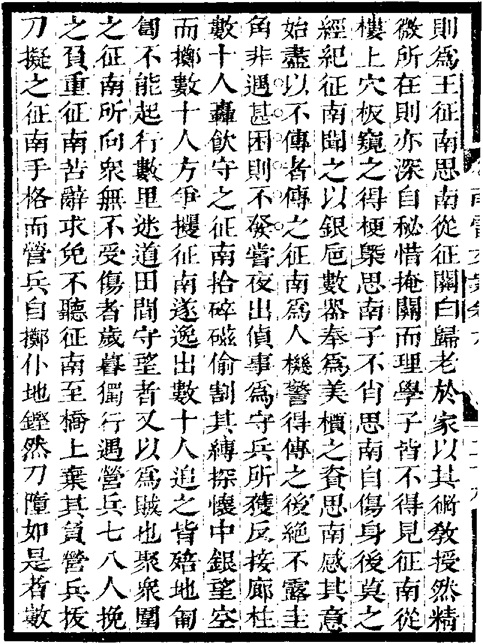 則為王征南思南從征關白歸老於家以其術教授然精
微所在則亦深自秘惜掩關而理學子皆不得見征南從
樓上穴板窺之得梗槩思南子不肖思南自傷身後莫之
經紀征南聞之以銀巵數器奉為美檟之資思南感其意
始盡以不傳者傳之征南為人機警得傳之後絶不露圭
角非遇甚困則不發嘗夜出偵事為守兵所獲反接廊柱
數十人轟飲守之征南拾碎磁偷割其縛探懷中銀望空
而擲數十人方爭攫征南遂逸出數十人追之皆踣地匐
匐不能起行數里迷道田間守望者又以為賊也聚衆圍
之征南所向衆無不受傷者歲暮獨行遇營兵七八人挽
之負重征南苦辭求免不聽征南至橋上棄其負營兵拔
刀擬之征南手格而營兵自擲仆地鏗然刀墮如是者數